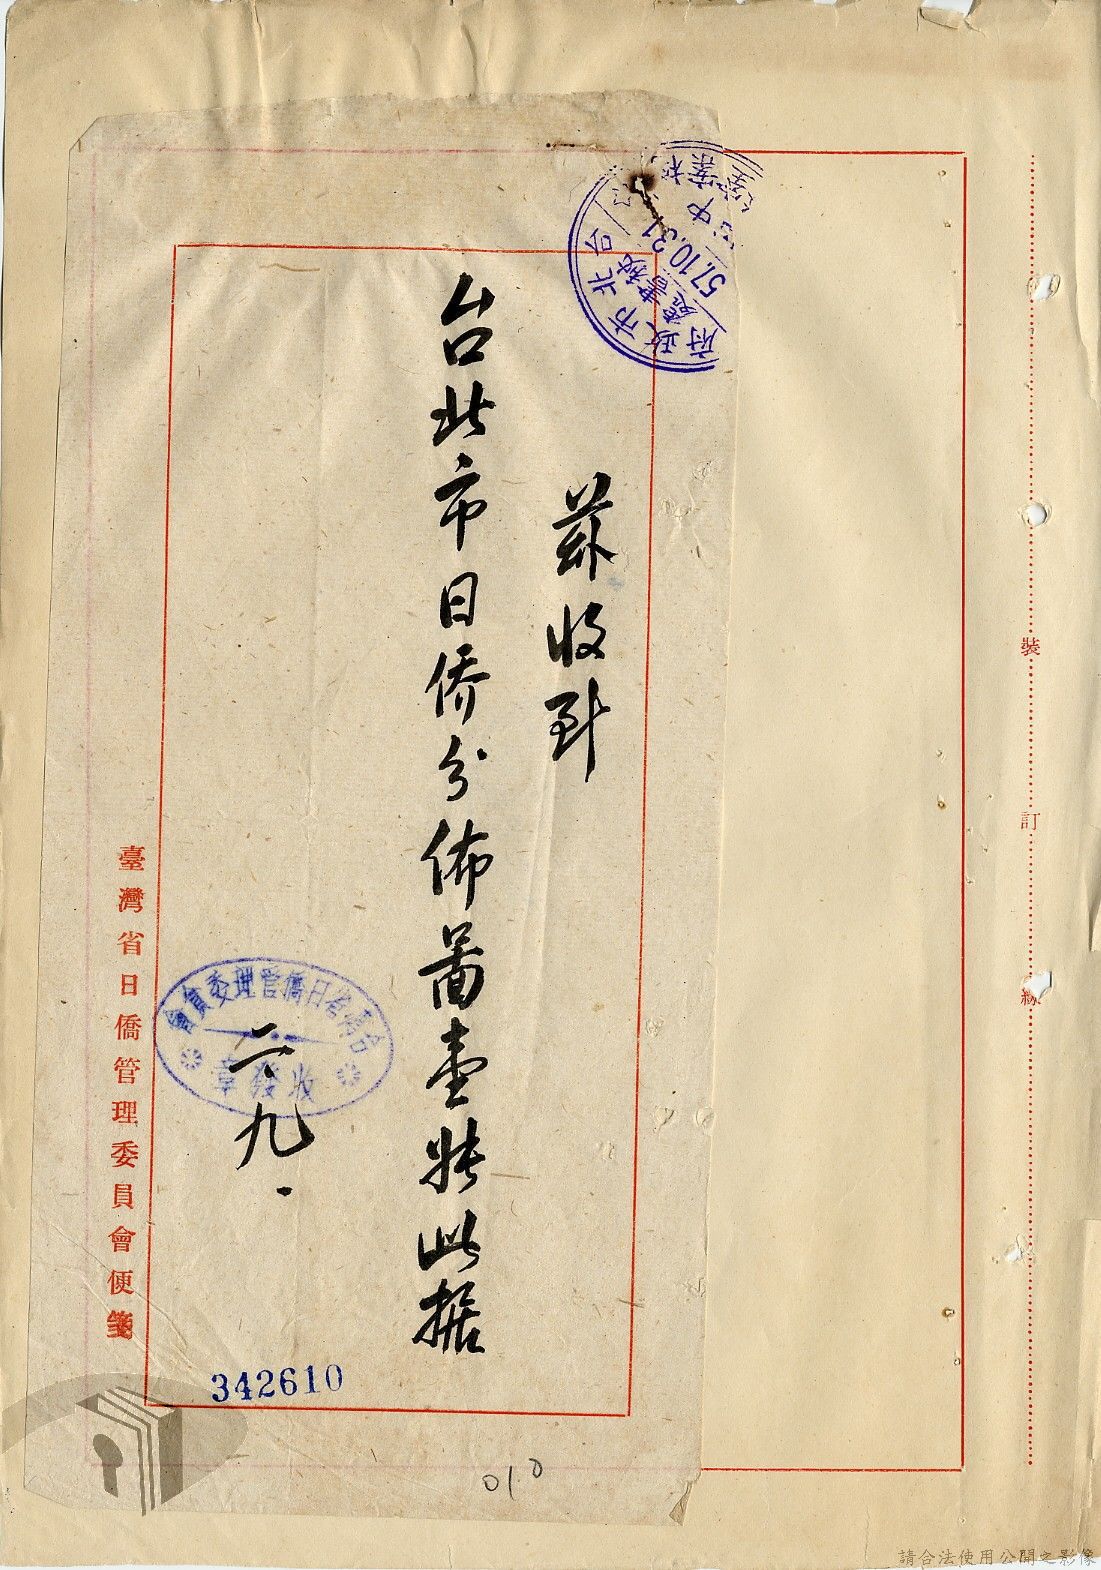 茲收到
台北市日僑分佈啚壹張此据
二、九、
臺灣省日僑管理委員會便箋
台灣省日僑管理委員會
收發章
台北市政府
秘書處
57.10.31
檔案室
342610
010
裝
訂
線
請合法使用公開之影像